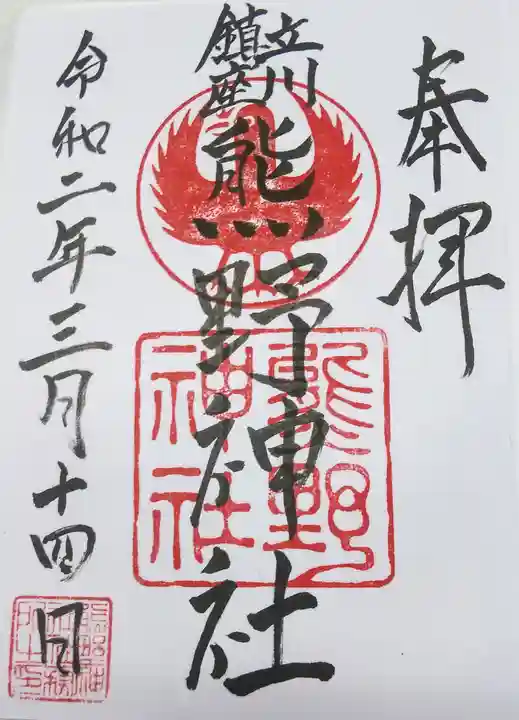 奉拝
立川
鎮座
熊野神社
熊野
神社
令和二年三月十四日